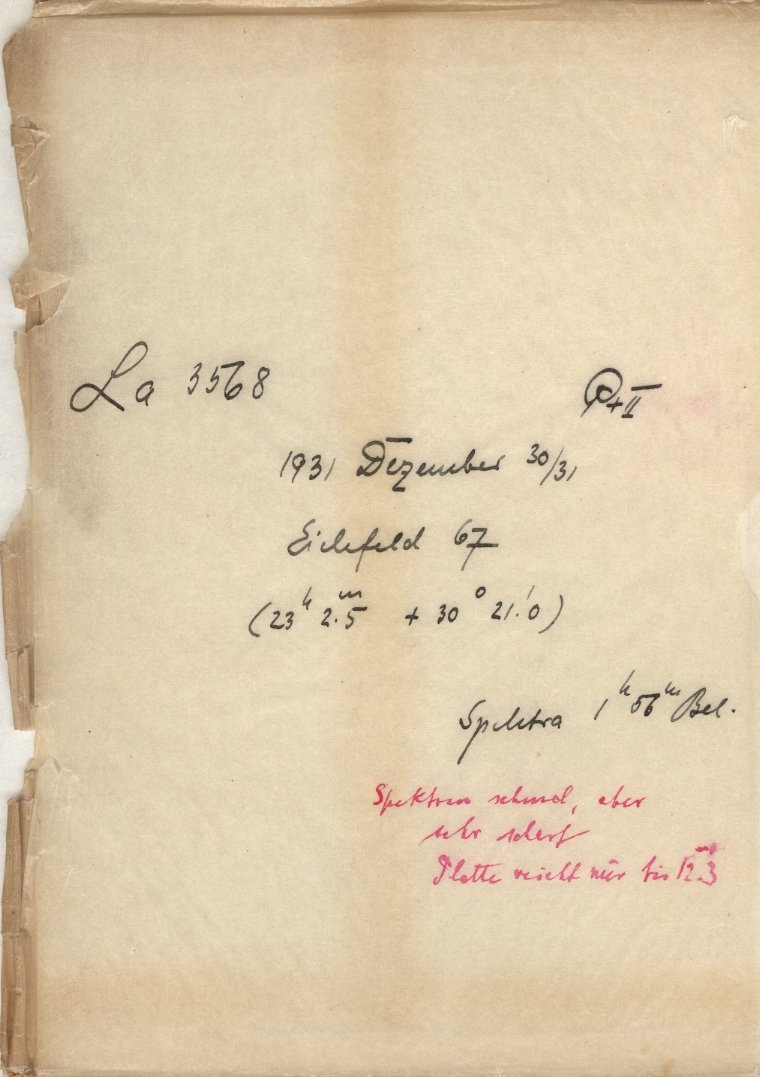 La 3568 P+II
1931 Dezember 30/31
Eichfeld 67
(23h 2.5m + 30° 21.'0)
Spektra 1h 56m Bel.
Spektren schmal, aber
sehr scharf
Platte reicht nur bis 12.m3